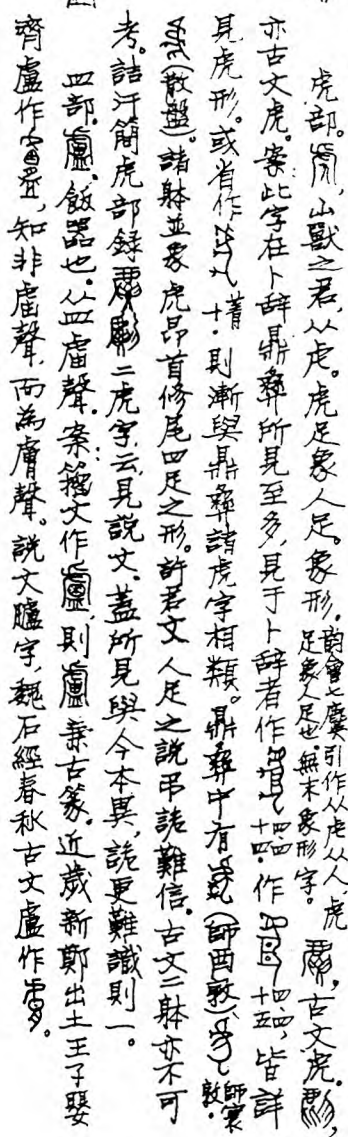 虎部。虎,山獸之君,从虍。虎足象人足。象形。韵會七麌引作从虍从人,虎足象人足也。無末象形字。古文虎。
亦古文虎。案:此字在卜辭鼎彝所見至多,見于卜辭者作 十四 作 十四 皆詳
見虎形。或省作 菁十 則漸與鼎彝諸虎字相類。鼎彝中有 (師酉敦)、 師寰敦。
(散盤)。諸躰並象虎昂首修尾四足之形。許君文人足之説弔詭難信。古文二躰亦不可
考。詰汗簡虎部録 二虎字,云見說文。蓋所見與今本異,詭更難識則一。
皿部。盧,飯器也。从皿虍聲。案:籀文作 則盧乗古篆。近歲新鄭出土王子嬰
齊盧作 知非虍聲,而為膚聲。說文臚字,魏石經春秋古文盧作